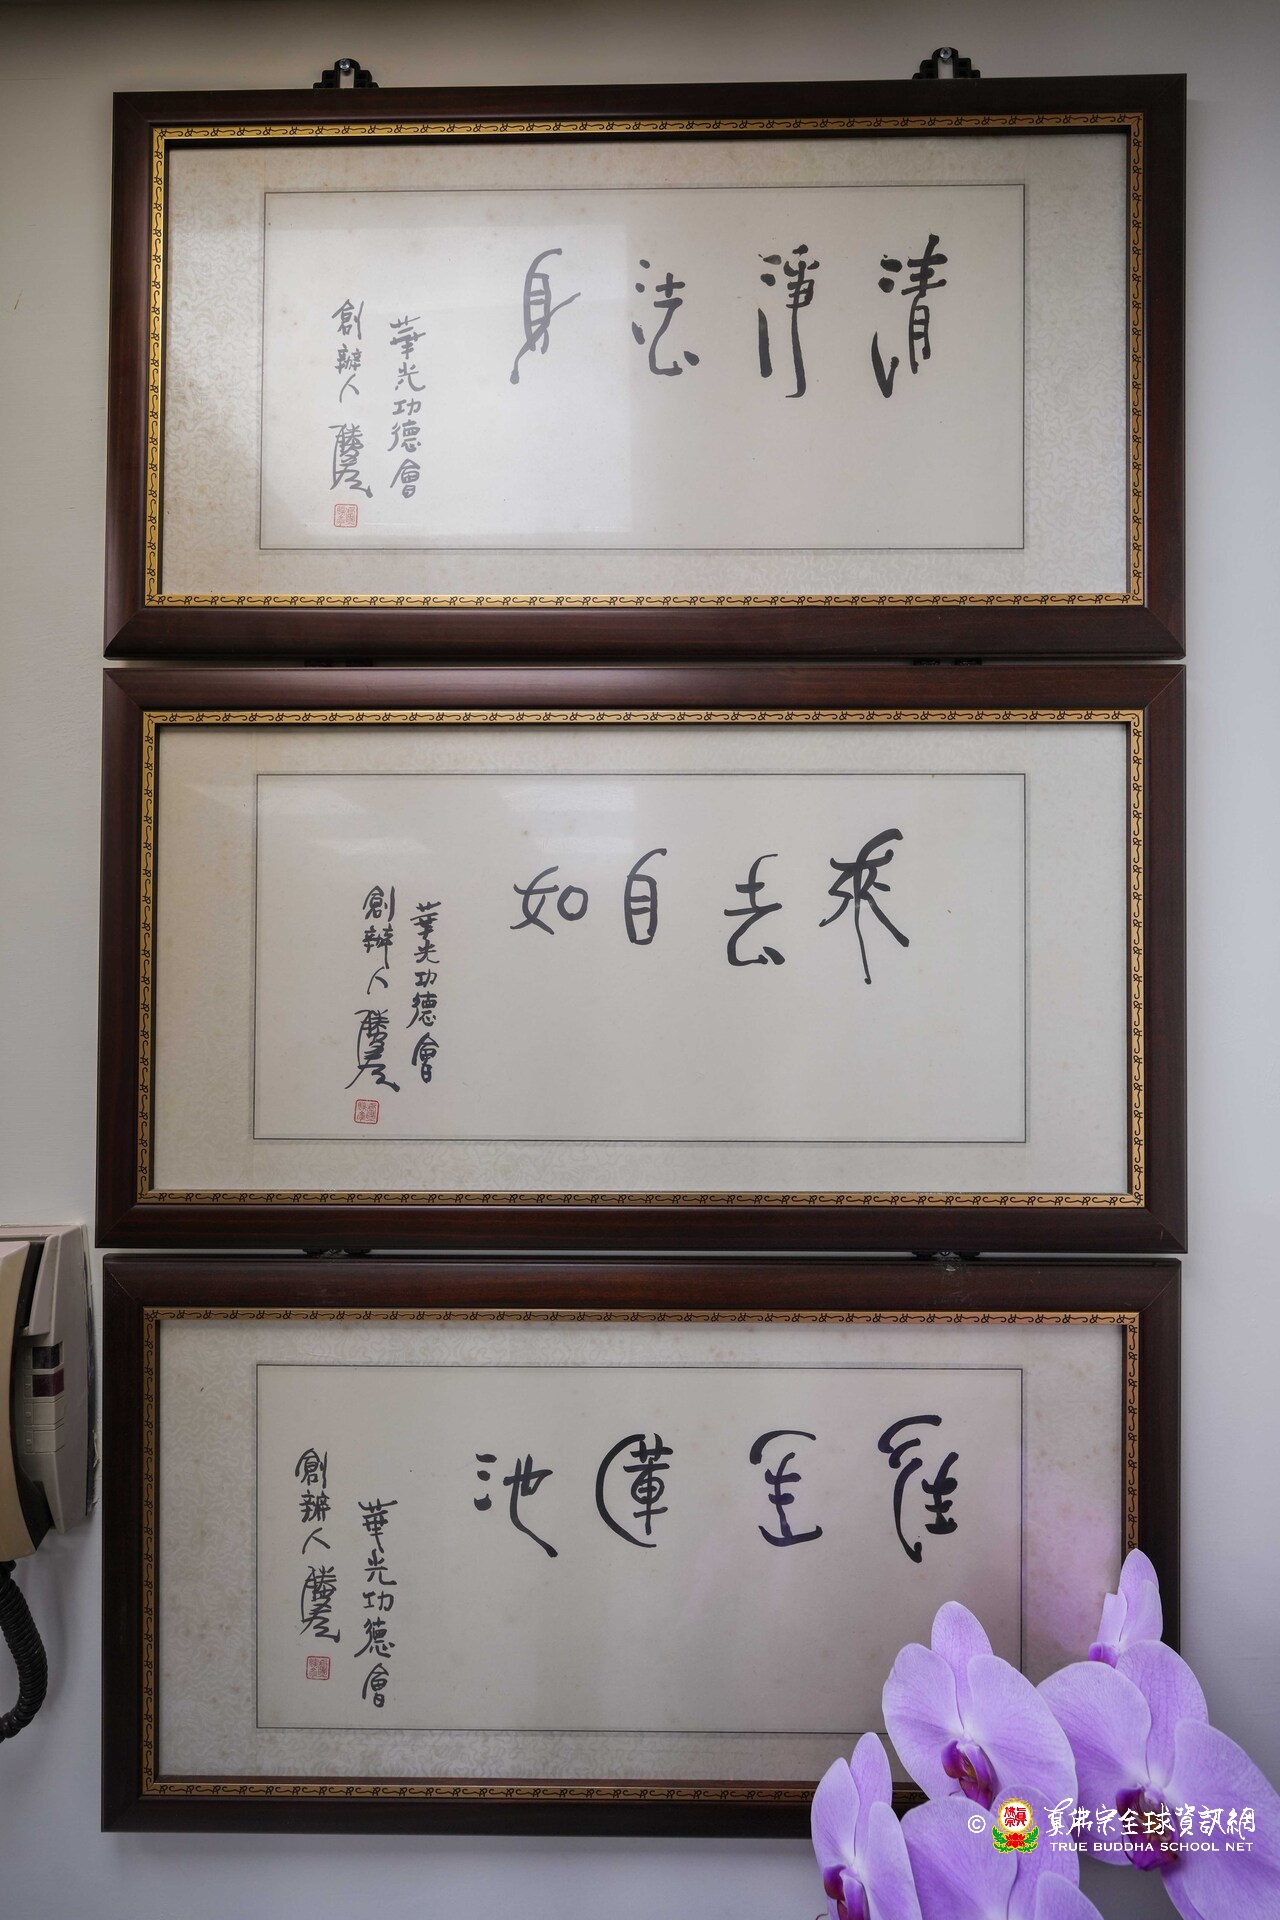 清淨法身
華光功德會
創辦人 勝彥
來去自如
華光功德會
創辦人 勝彥
蓮池
華光功德會
創辦人 勝彥
© 真佛宗全球資訊網
TRUE BUDDHA SCHOOL NET